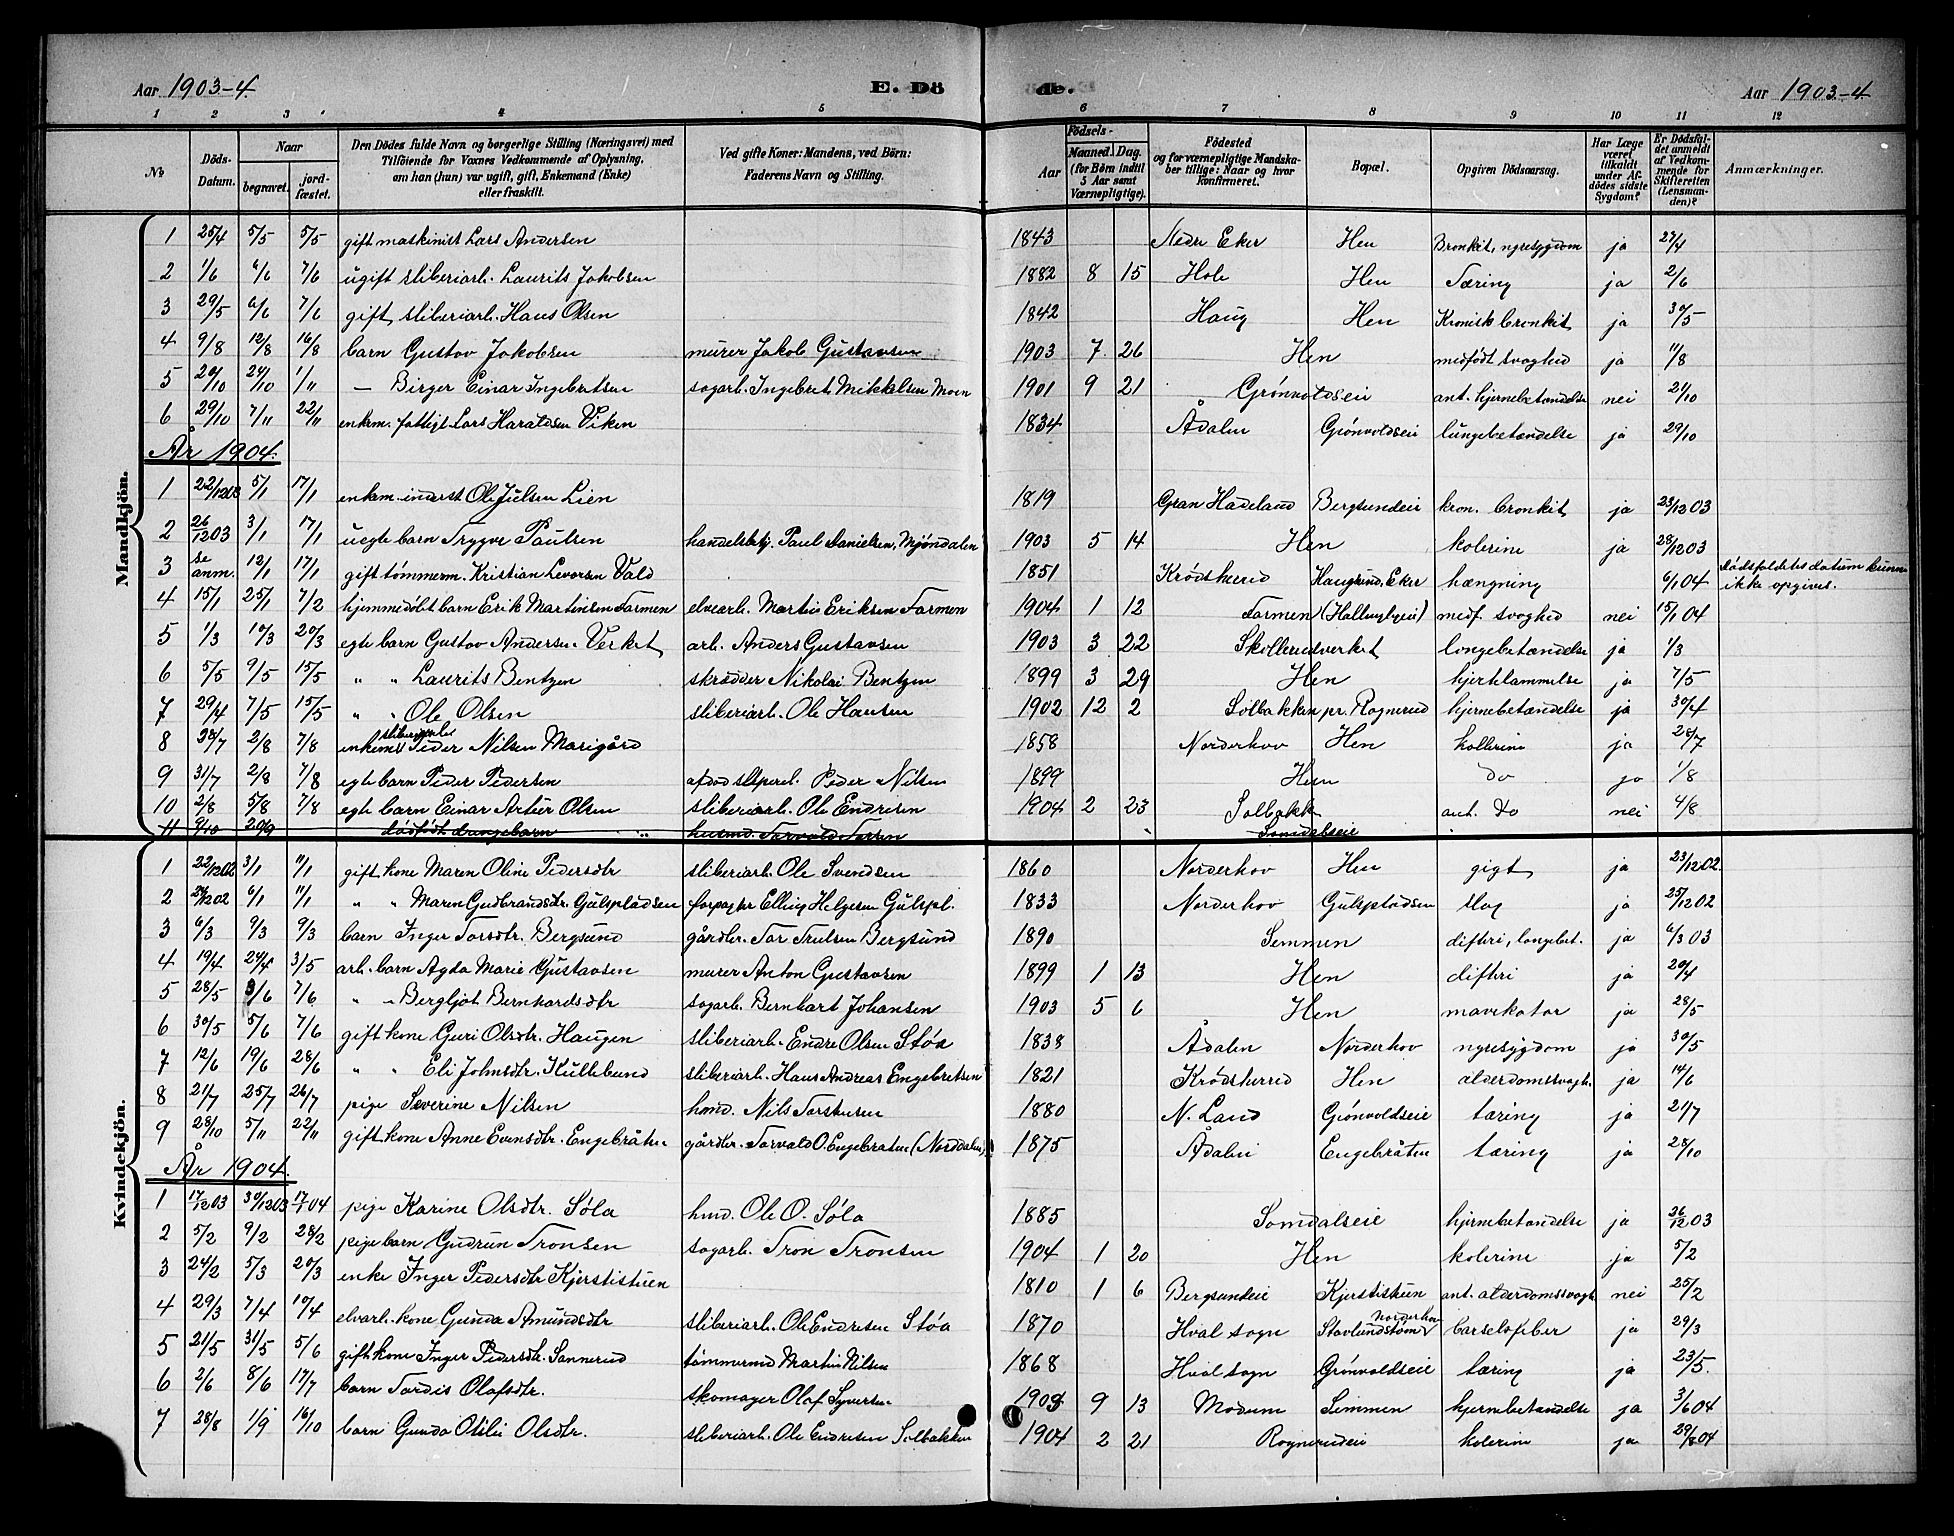 Aar 1903-4. E. Dö de. Aar 1903-4
1 2 3 4 5 6 7 8 9 10 11 12
No
Döds-Datum.
Naar
begravet.
jord-fæstet.
Den Dödes fulde Navn og borgerlige Stilling (Næringsvei) med
Tilföiende for Voxnes Vedkommende af Oplysning,
om han (hun) var ugift, gift, Enkemand (Enke)
eller fraskilt.
Ved gifte Koner: Mandens, ved Börn:
Faderens Navn og Stilling.
Födsels-
Aar
Maaned. Dag.
(for Börn indtil
5 Aar samt
Værnepligtige).
Födested
og for værnepligtige Mandska-
ber tillige: Naar og hvor
konfirmeret.
Bopæl.
Opgiven Dödsaarsag.
Har Læge
været
tilkaldt
under Af-
dödes sidste
Sygdom?
Er Dödsfal-
det anmeldt
af Vedkom-
mende for
Skifteretten
(Lensman-
den)?
Anmærkninger.
Mandkjön.
1 25/4 5/5 5/5 gift maskinist Lars Andersen 1843 Nedre Eker Hen Bronkit, nyresygdom ja 27/4
2 1/6 6/6 7/6 ugift sliberiarb. Laurits Jakobsen 1882 8 15 Hole Hen Tæring ja 2/6
3 29/5 6/6 7/6 gift sliberiarb. Hans Olsen 1842 Haug Hen Kronisk bronkit ja 30/5
4 9/8 12/8 16/8 barn Gustav Jakobsen murer Jakob Gustavsen 1903 7 26 Hen medfødt svaghed ja 11/8
5 20/10 24/10 1/11 — Birger Einar Ingebretsen sagarb. Ingebret Mikkelsen Moen 1901 9 21 Grønvoldseie ant. hjernebetændelse nei 21/10
6 29/10 7/11 22/11 enkem. fattigl. Lars Haraldsen Viken 1834 Ådalen Grønvoldseie lungebetændelse ja 29/10
År 1904.
1 22/12 03 5/1 17/1 enkem. inderst Ole Julsen Lien 1819 Gran Hadeland Bergsundeie kron. bronkit ja 23/12 03
2 26/12 03 3/1 17/1 uegte barn Trygve Paulsen handelsbetj. Paul Danielsen, Mjøndalen 1903 5 14 Hen kolerine ja 28/12 03
3 se anm. 12/1 17/1 gift tømmerm. Kristian Levorsen Vald 1851 Krødsherred Haugsund, Eker hængning 6/1 04 Dødsfaldets datum kunne
ikke opgives.
4 15/1 25/1 7/2 hjemmedøbt barn Erik Martinsen Tarmen elvearb. Martin Eriksen Tarmen 1904 1 12 Tarmen (Hallingbyeie) medf. svaghed nei 15/1 04
5 1/3 10/3 20/3 egte barn Gustav Andersen Verket arb. Anders Gustavsen 1903 3 22 Skollerudverket longebetændelse ja 1/3
6 5/5 9/5 15/5 " " Laurits Bentzen skrædder Nikolai Bentzen 1899 3 29 Hen hjertelammelse ja 7/5
7 29/4 7/5 15/5 " " Ole Olsen sliberiarb. Ole Hansen 1902 12 2 Solbakken pr. Rognerud hjernebetændelse ja 30/4
8 28/7 2/8 7/8 enkem. sliberiarb. Peder Nilsen Marigård 1858 Norderhov Hen kollerine ja 28/7
9 31/7 2/8 7/8 egte barn Peder Pedersen afdød Peder Nilsen 1899 Hen do ja 1/8
10 2/8 5/8 7/8 egte barn Einar Artur Olsen sliberiarb. Ole Endresen 1904 2 23 Solbakk ant. do nei 4/8
11 9/10 dødfødt drengebarn " husmd. Torvald Torsen Somdalseie
Kvindekjön.
1 22/12 02 3/1 11/1 gift kone Maren Oline Pedersdtr sliberiarb. Ole Svendsen 1860 Norderhov Hen gigt ja 23/12 02.
2 24/12 02 6/1 11/1 " " Maren Gudbrandsdtr. Gulspladsen forpagter Elling Helgesen Gulspl. 1833 Norderhov Gulspladsen slag ja 25/12 02
3 6/3 9/3 9/3 barn Inger Torsdtr. Bergsund gårdbr. Tor Trulsen Bergsund 1890 Semmen difteri, longebet. ja 6/3 03
4 19/4 24/4 3/5 arb. barn Agda Marie Gustavsen murer Anton Gustavsen 1899 1 13 Hen difteri ja 20/4
5 28/5 3/6 7/6 " " Bergljot Bernhardsdtr sagarb. Bernhart Johansen 1903 5 6 Hen mavekatar ja 28/5
6 30/5 5/6 7/6 gift kone Guri Olsdtr. Haugen sliberiarb. Endre Olsen Støa 1838 Ådalen Norderhov nyresygdom ja 30/5
7 12/6 19/6 28/6 " " Eli Johnsdtr. Kullebund sliberiarb. Hans Andreas Engebretsen 1821 Krødsherred Hen alderdomssvagh. ja 14/6
8 21/7 25/7 26/7 pige Severine Nilsen hmd. Nils Torstensen 1880 N. Land Grønvoldseie tæring ja 21/7
9 28/10 5/11 22/11 gift kone Anne Evensdtr. Engebråten gårdbr. Torvald O. Engebraten (Norddalen) 1875 Ådalen Engebråten tæring ja 28/10
År 1904.
1 17/12 03 30/12 03 17/1 04 pige Karine Olsdtr. Søla hmd. Ole O. Søla 1885 Somdalseie hjernebetændelse ja 26/12 03
2 5/2 9/2 28/2 pige barn Gudrun Tronsen sagarb. Tron Tronsen 1904 1 20 Hen kolerine ja 5/2
3 24/2 5/3 20/3 enke Inger Pedersdtr Kjerstistuen 1810 1 6 Bergsundeie Kjerstistuen ant. alderdomssvagh. nei 25/2
4 29/3 7/4 10/4 elvarb. kone Gunda Amundsdtr sliberiarb. Ole Endresen Støa 1870 Hval sogn Stavlundstøm Norderhov barselsfeber ja 29/3
5 21/5 31/5 5/6 gift kone Inger Pedersdtr. Sannerud tømmermd Martin Nilsen 1868 Hval sogn Grønvoldseie tæring ja 23/5.
6 2/6 8/6 17/7 barn Tordis Olafsdtr. skomager Olaf Syversen 1903 9 13 Modum Semmen hjernebetændelse ja 3/6 04
7 28/8 1/9 16/10 barn Gunda Otilie Olsdtr. sliberiarb. Ole Endresen Solbakken 1904 2 21 Rognerudeie kolerine ja 29/8 04